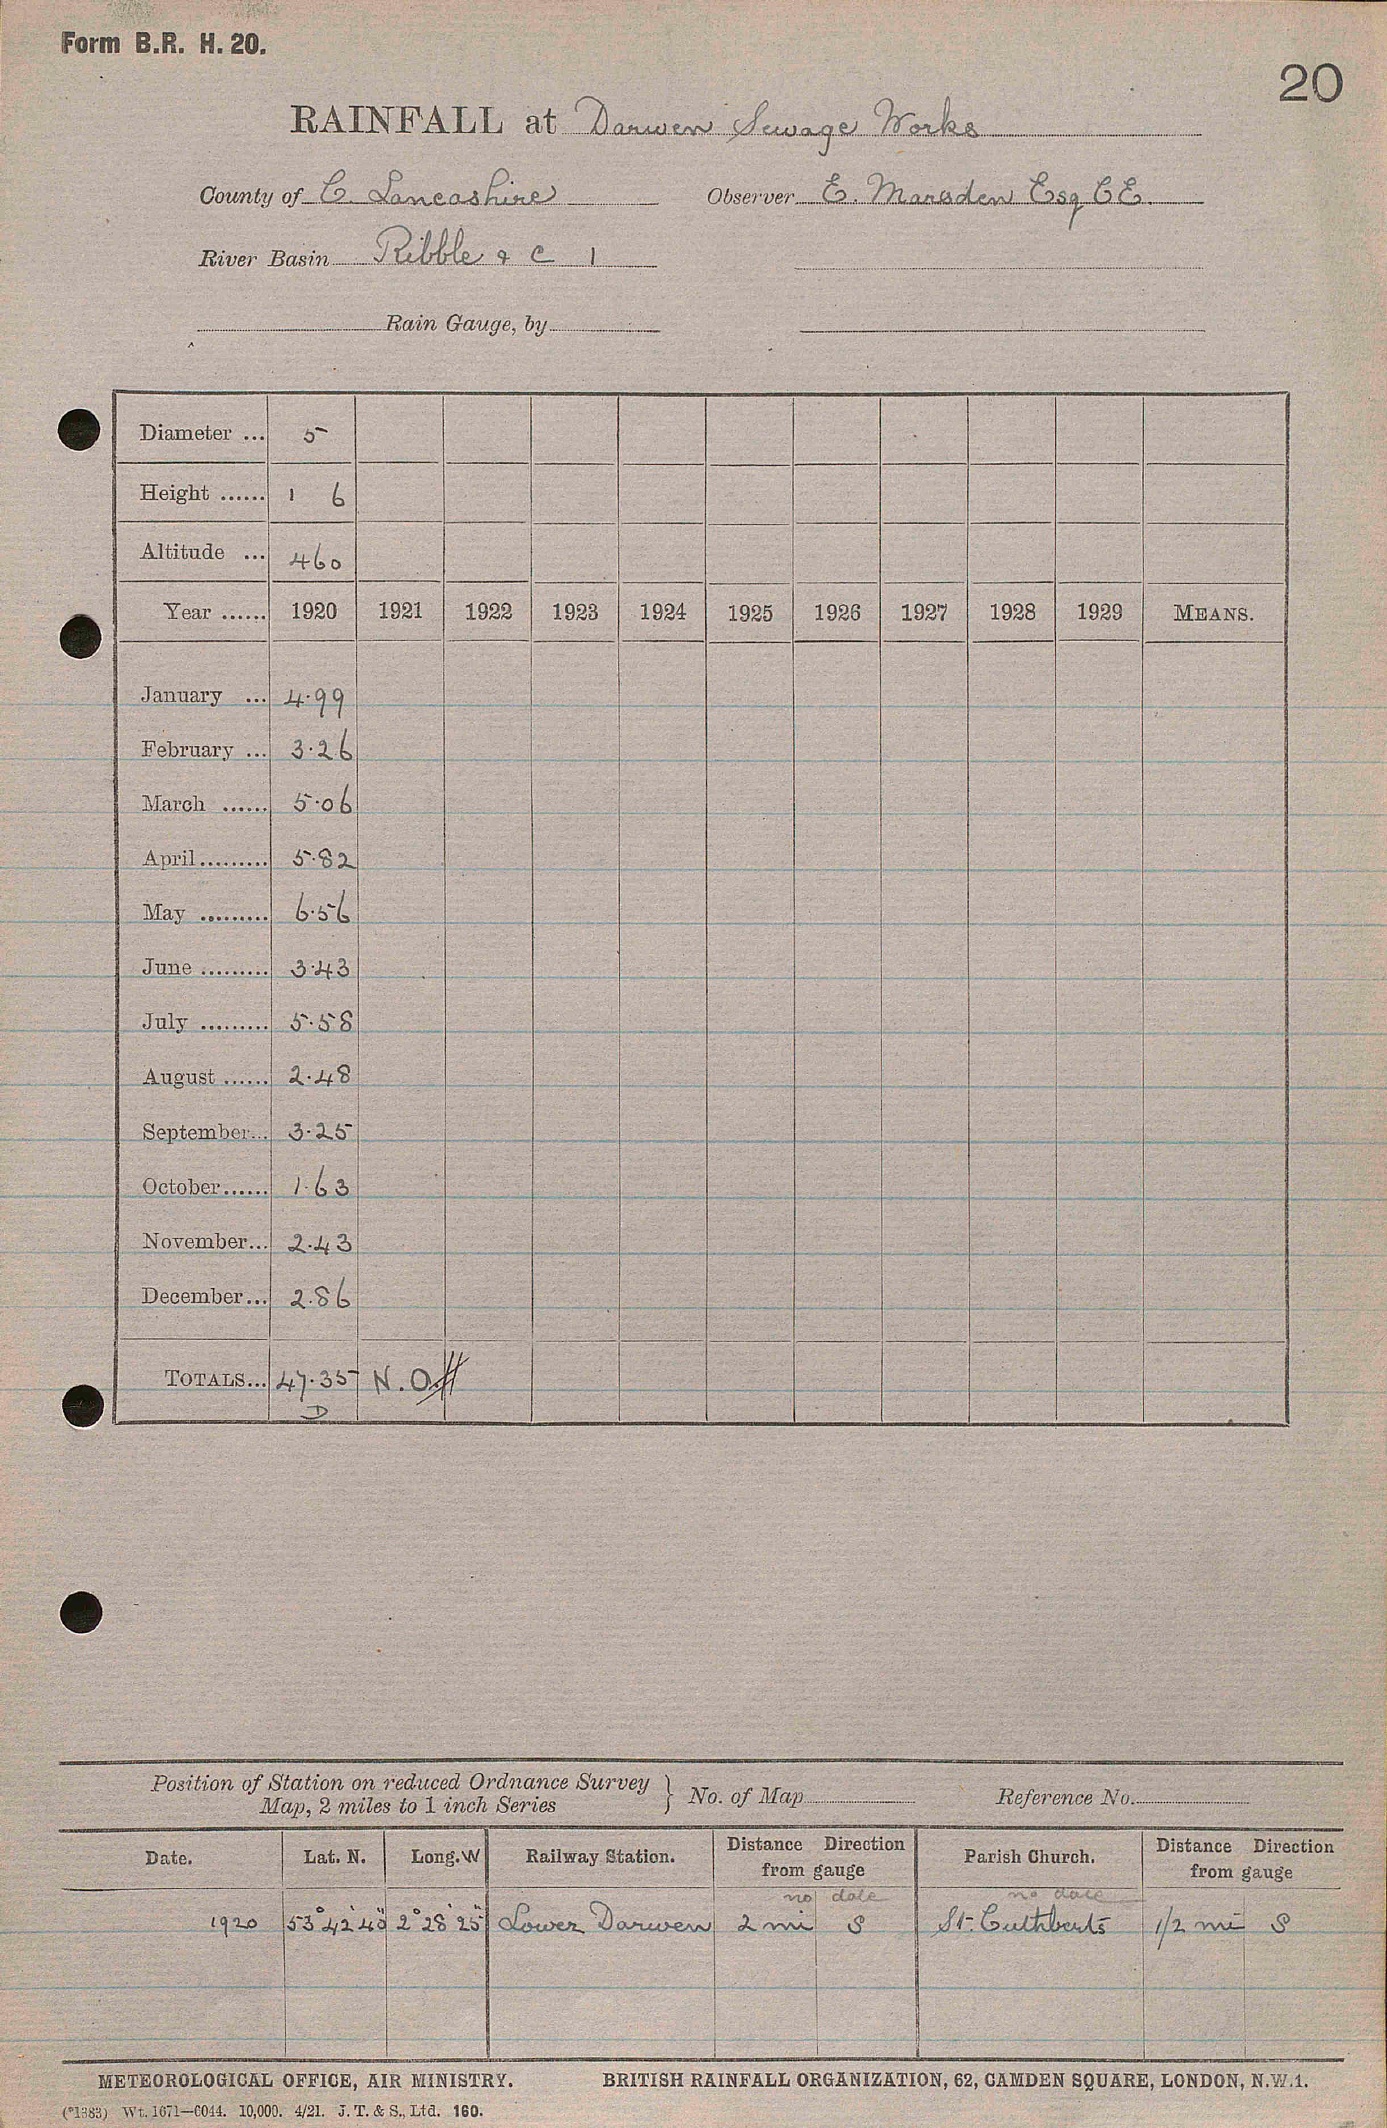 Form B.R. H. 20.
20
RAINFALL at Darwen Sewage Works
County of C. Lancashire Observer E. Marsden Esq CE.
River Basin Ribble & C 1
Rain Gauge, by
Diameter ... 5
Height ...... 1 6
Altitude ... 460
Year ...... 1920 1921 1922 1923 1924 1925 1926 1927 1928 1929 MEANS.
January ... 4.99
February ... 3.26
March ...... 5.06
April......... 5.82
May ......... 6.56
June ......... 3.43
July ......... 5.58
August ...... 2.48
September... 3.25
October...... 1.63
November... 2.43
December... 2.86
TOTALS... 47.35 N.O.
D
Position of Station on reduced Ordnance Survey
Map, 2 miles to 1 inch Series } No. of Map Reference No.
Date. Lat. N. Long. W Railway Station. Distance Direction from gauge Parish Church. Distance Direction from gauge
no date no date
1920 53° 42' 40" 2° 28' 25" Lower Darwen 2 mi S St. Cuthberts 1/2 mi S
METEOROLOGICAL OFFICE, AIR MINISTRY. BRITISH RAINFALL ORGANIZATION, 62, CAMDEN SQUARE, LONDON, N.W.1.
(*1383) Wt. 1671—6044. 10,000. 4/21. J. T. & S., Ltd. 160.